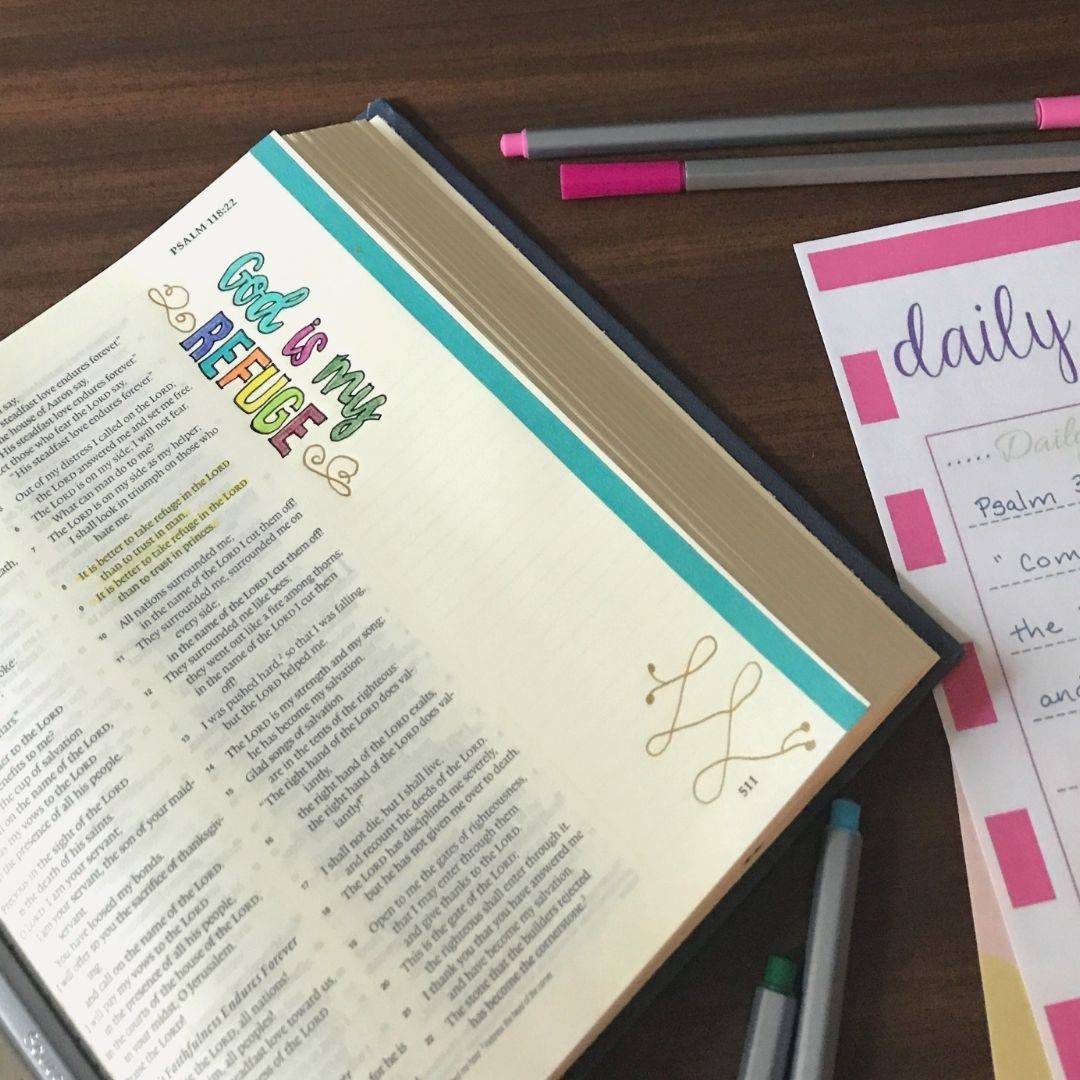 PSALM 118:22
God is my
REFUGE
say,
steadfast love endures forever."
the house of Aaron say,
"His steadfast love endures forever."
Let those who fear the LORD say,
"His steadfast love endures forever."
Out of my distress I called on the LORD;
the LORD answered me and set me free.
6 The LORD is on my side; I will not fear.
What can man do to me?
7 The LORD is on my side as my helper;
I shall look in triumph on those who
hate me.
8 It is better to take refuge in the LORD
than to trust in man.
9 It is better to take refuge in the LORD
than to trust in princes.
10 All nations surrounded me;
in the name of the LORD I cut them off!
11 They surrounded me, surrounded me on
every side;
in the name of the LORD I cut them off!
12 They surrounded me like bees;
they went out like a fire among thorns;
in the name of the LORD I cut them
off!
13 I was pushed hard,² so that I was falling,
but the LORD helped me.
14 The LORD is my strength and my song;
he has become my salvation.
15 Glad songs of salvation
are in the tents of the righteous:
"The right hand of the LORD does val-
iantly,
16 the right hand of the LORD exalts,
the right hand of the LORD does val-
iantly!"
17 I shall not die, but I shall live,
and recount the deeds of the LORD.
18 The LORD has disciplined me severely,
but he has not given me over to death.
19 Open to me the gates of righteousness,
that I may enter through them
and give thanks to the LORD.
20 This is the gate of the LORD;
the righteous shall enter through it.
21 I thank you that you have answered me
and have become my salvation.
22 The stone that the builders rejected
has become the cornerstone.³
511
death,
to the LORD
benefits to me?
the cup of salvation
the name of the LORD,
my vows to the LORD
presence of all his people.
Precious in the sight of the LORD
is the death of his saints.
O LORD, I am your servant;
I am your servant, the son of your maid-
servant.
You have loosed my bonds.
I will offer to you the sacrifice of thanksgiv-
ing
and call on the name of the LORD.
I will pay my vows to the LORD
in the presence of all his people,
in the courts of the house of the LORD,
in your midst, O Jerusalem.
the LORD!
Faithfulness Endures Forever
the LORD, all nations!
him, all peoples!
steadfast love toward us,
of the LORD
for he is
daily
Daily
Psalm
" Com
the
and